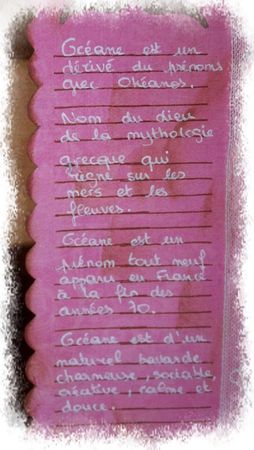 Océane est un
dérivé du prénoms
grec Okéanos.
Nom du dieu
de la mythologie
grecque qui
règne sur les
mers et les
fleuves.
Océane est un
prénom tout neuf
apparu en France
à la fin des
années 70.
Océane est d'un
naturel bavarde
charmeuse, sociable,
créative, calme et
douce.